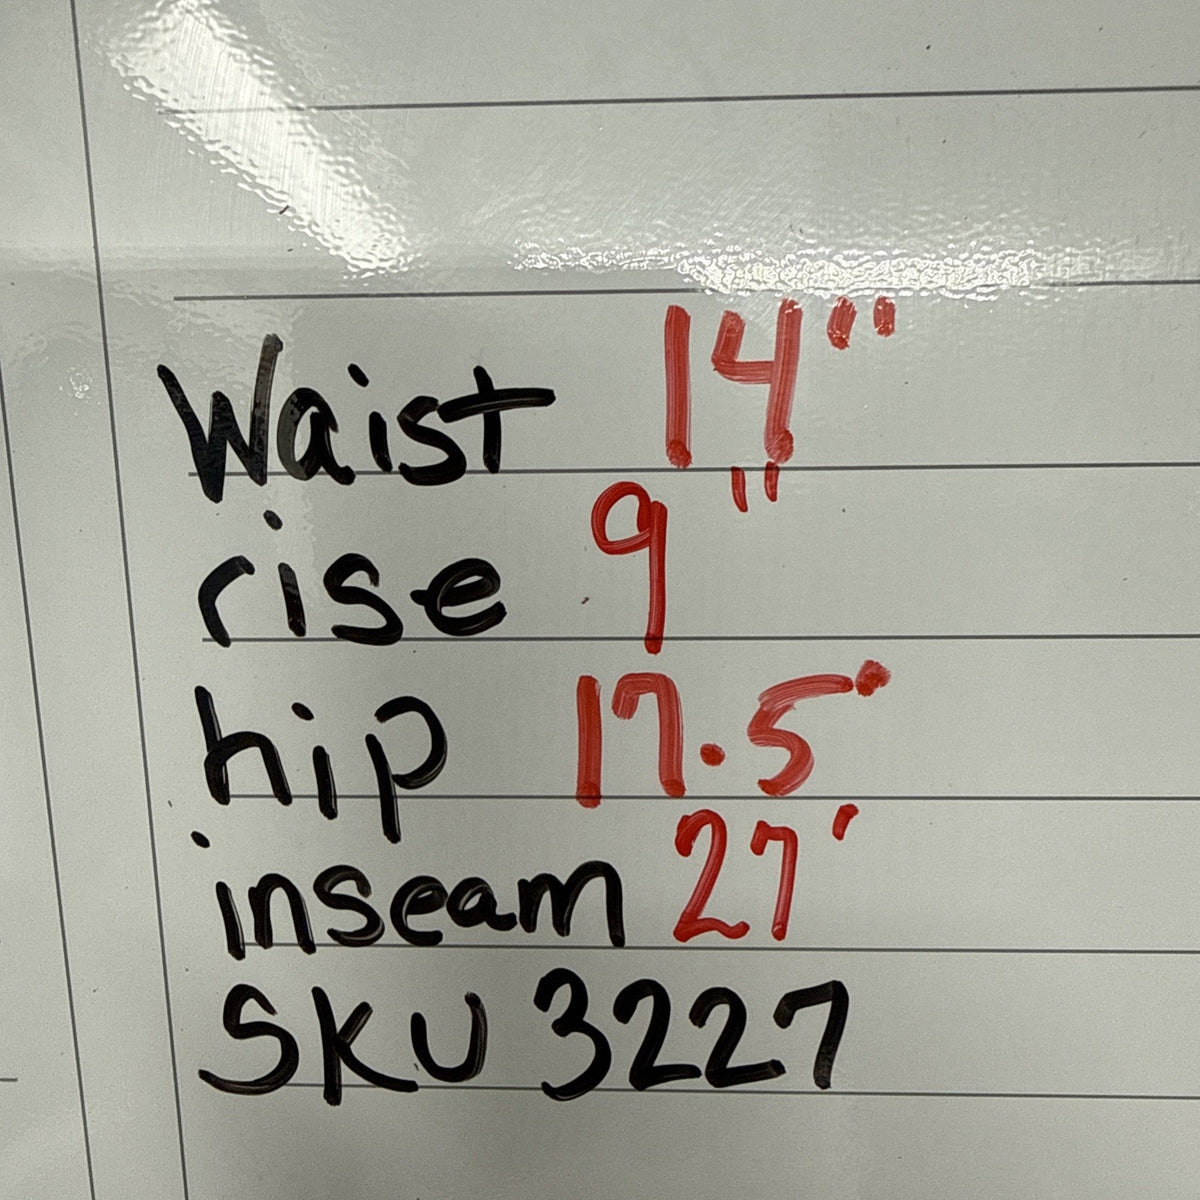 Waist 14"
rise 9"
hip 17.5
inseam 27'
SKU 3227